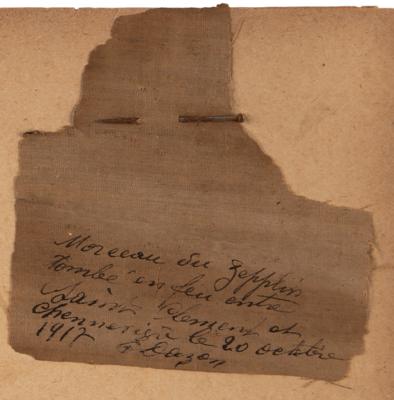 Morceau du zepplin
tombé en feu entre
Saint Clement et
Chenneviere le 20 octobre
1917